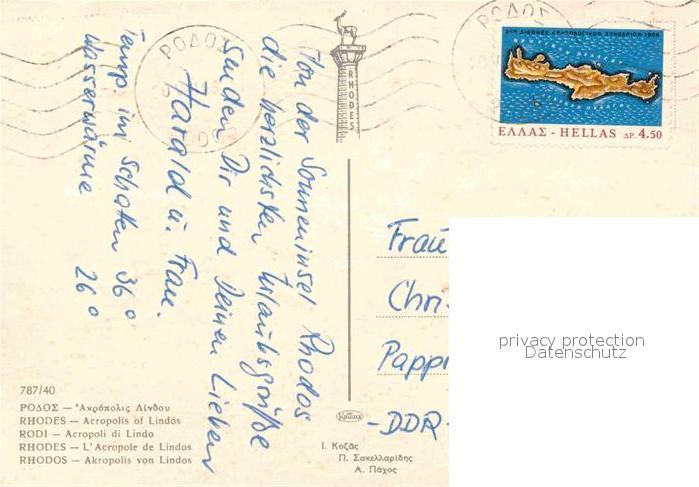 ΡΟΔΟΣ
RHODES
ΡΟΔΟΣ
2ον ΔΙΕΘΝΕΣ ΚΡΗΤΟΛΟΓΙΚΟΝ ΣΥΝΕΔΡΙΟΝ 1966
ΕΛΛΑΣ - HELLAS ΔΡ. 4.50
Von der Sonneninsel Rhodos
die herzlichsten Urlaubsgrüße
senden Dir und Deinen Lieben
Harald u. Frau.
Temp im Schatten 36°
Wasserwärme 26°
Frau
Chri
Pappe
-DDR-
privacy protection
Datenschutz
787/40
ΡΟΔΟΣ — Ἀκρόπολις Λίνδου
RHODES — Acropolis of Lindos
RODI — Acropoli di Lindo
RHODES — L'Acropole de Lindos
RHODOS — Akropolis von Lindos
Ι. Κοζᾶς
Π. Σακελλαρίδης
Α. Πάχος